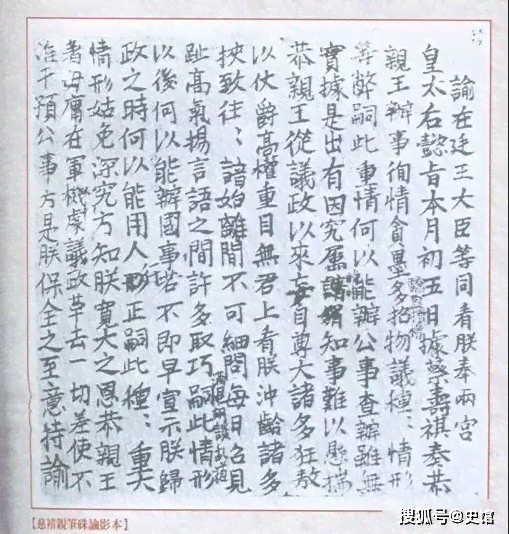 諭在廷王大臣等同看朕奉兩宮
皇太后懿旨本月初五日據蔡壽祺奏恭
親王辦事徇情貪墨多招物議種〻情形
等弊嗣此重情何以能辦公事查辦雖無
實據是出有因究屬知事難以懸揣
恭親王從議政以來妄自尊大諸多狂敖
以仗爵高權重目無君上看朕冲齡諸多
挾致往〻諳始離間不可細問每日召見
趾高氣揚言語之間許多取巧嗣此情形
以後何以能辦國事若不即早宣示朕歸
政之時何以能用人行正嗣此種〻重大
情形姑免深究方知朕寬大之恩恭親王
著毋庸在軍機處議政革去一切差使不
准干預公事方是朕保全之至意特諭
【慈禧親筆硃諭影本】
搜狐号@史馆